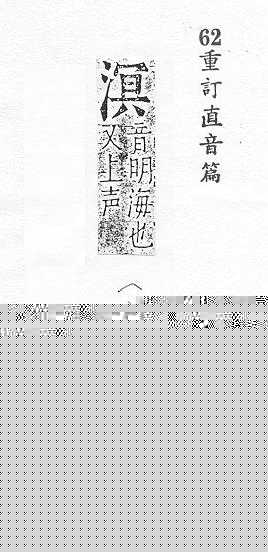 62重訂直音篇
溟
音明海也
又上声